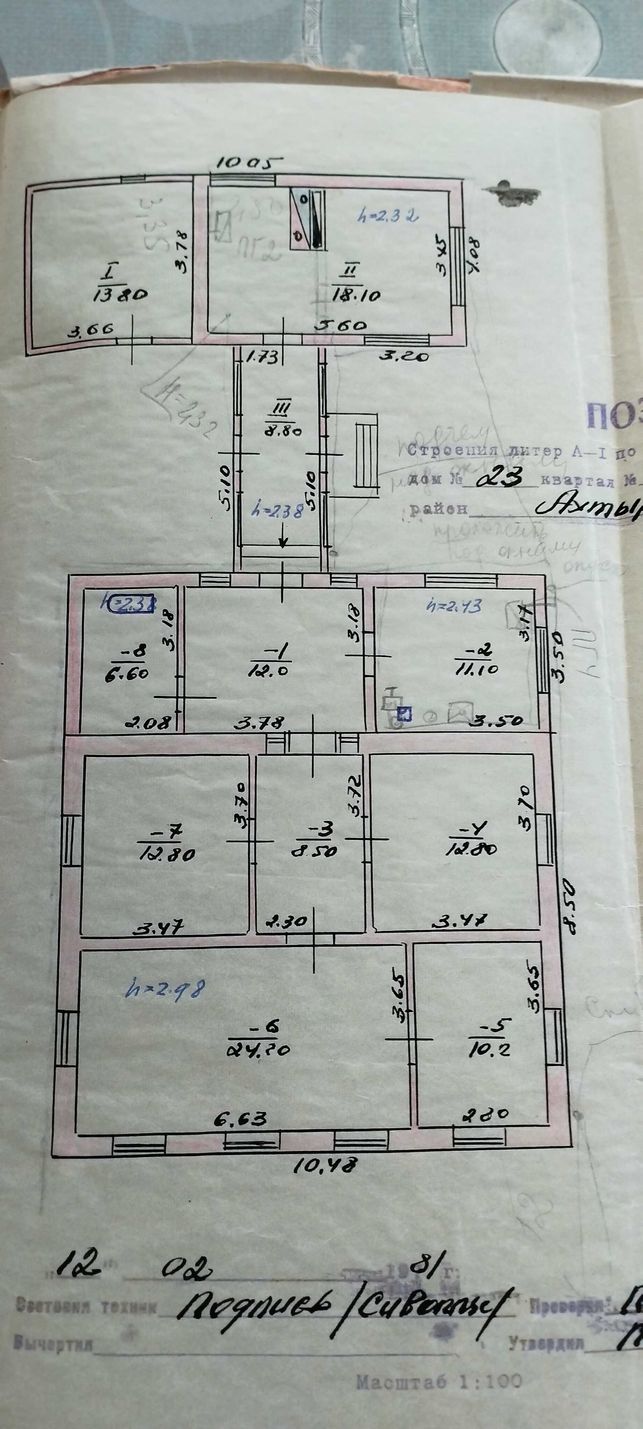 10.05
3,35
I
13.80
3.78
3.66
h=2.32
II
18.10
5.60
3.45
4.08
3.20
1.73
H=2,32
III
8.80
5.10
5.10
h=2.38
ПОЭ
Строения литер А—I по
дом № 23 квартал №
район Ахтыр
h=2.38
-8
6.60
2.08
3.18
-1
12.0
3.78
3.18
h=2.43
-2
11.10
3.50
3.17
3.50
ПГ4
-7
12.80
3.47
3.70
-3
8.50
2.30
3.72
-4
12.80
3.47
3.70
8.50
h=2.98
-6
24.20
6.63
3.65
-5
10.2
2.80
3.65
10.48
"12" 02 1981 г.
Составил техник Подпись
Проверил
Вычертил
Утвердил
Масштаб 1:100